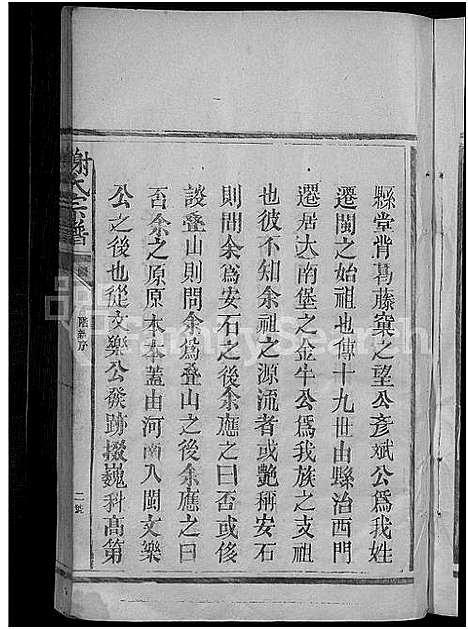 縣堂背葛藤窠之望公彦斌公爲我姓
遷閩之始祖也傳十九世由縣治西門
遷居达南堡之金牛公爲我族之支祖
也彼不知余祖之源流者或艷稱安石
則問余爲安石之後余應之曰否或侈
談叠山則問余爲叠山之後余應之曰
否余之原原本本蓋由河南入閩文樂
公之後也從文樂公發跡掇巍科高第
謝氏宗譜
序
二號
FamilySearch